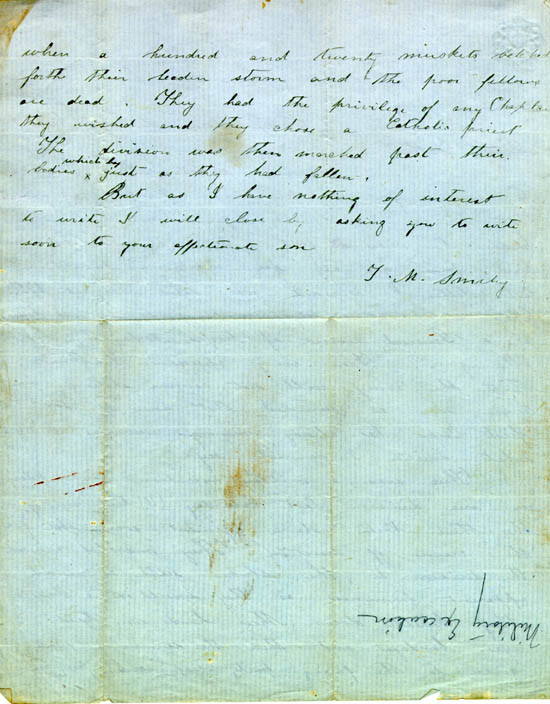 when a hundred and twenty muskets belched
forth their leaden storm and the poor fellows
are dead. They had the privilege of any Chaplain
they wished and they chose a Catholic priest
The division was then marched past their
bodies which lay just as they had fallen.
But as I have nothing of interest
to write I will close by asking you to write
soon to your affectionate son
T. M. Smiley
Military Execution